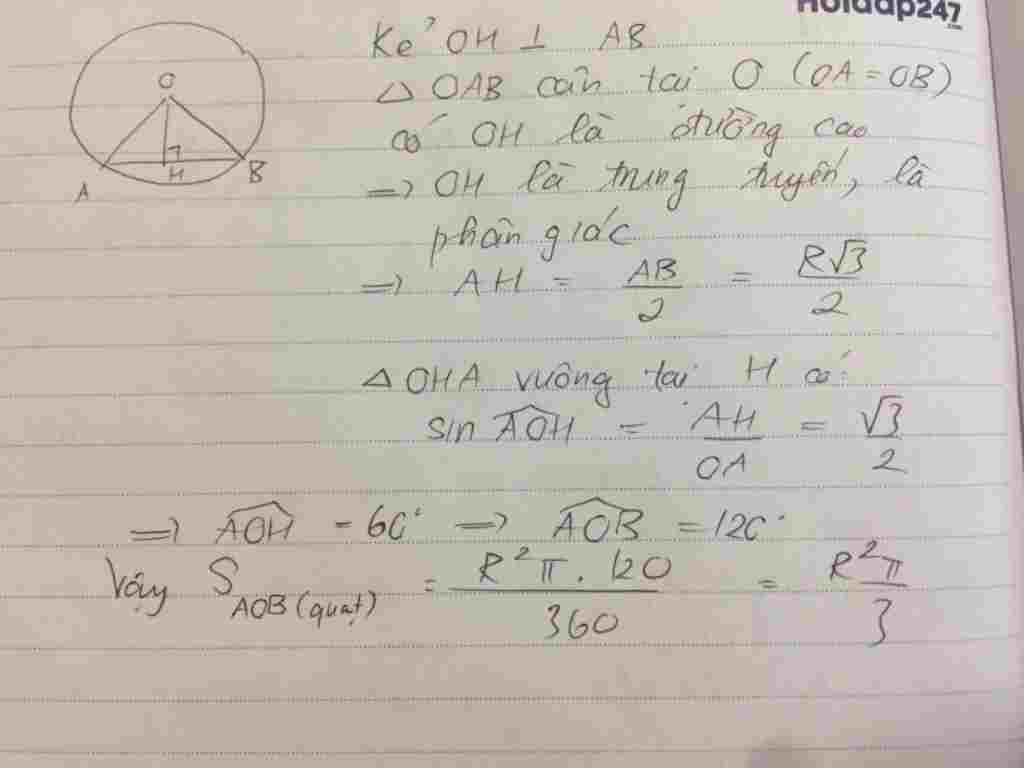 Hoidap247
.com
Kẻ OH ⊥ AB
△ OAB cân tại O (OA = OB)
có OH là đường cao
=> OH là trung tuyến, là
phân giác
=> AH = AB/2 = R√3/2
△ OHA vuông tại H có:
sin AOH = AH/OA = √3/2
=> AOH = 60° => AOB = 120°
Vậy S AOB (quạt) = R²π . 120/360 = R²π/3
O
A
H
B